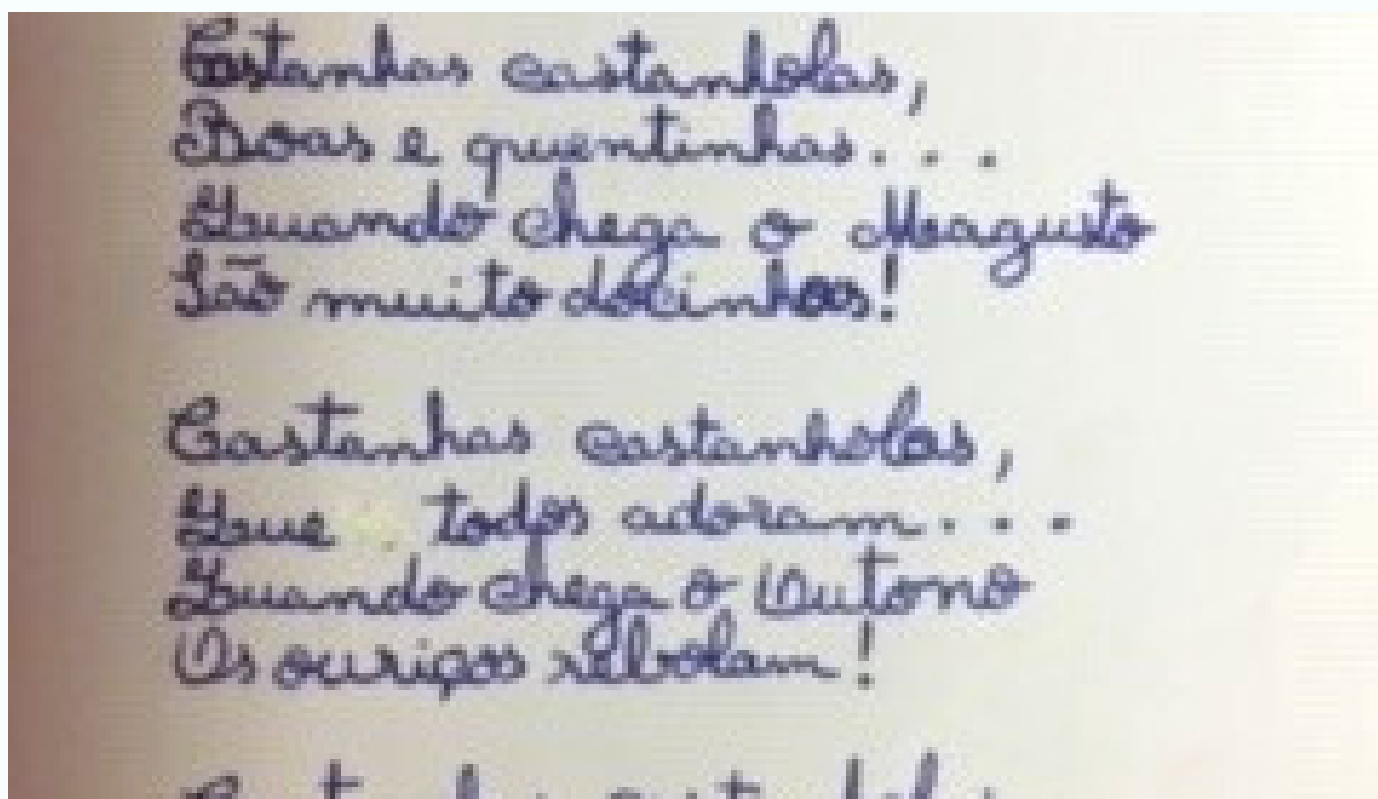 Castanhas castanholas,
Boas e quentinhas...
Quando chega o Magusto
São muito docinhas!
Castanhas castanholas,
Que todos adoram...
Quando chega o Outono
Os ouriços rebolam!